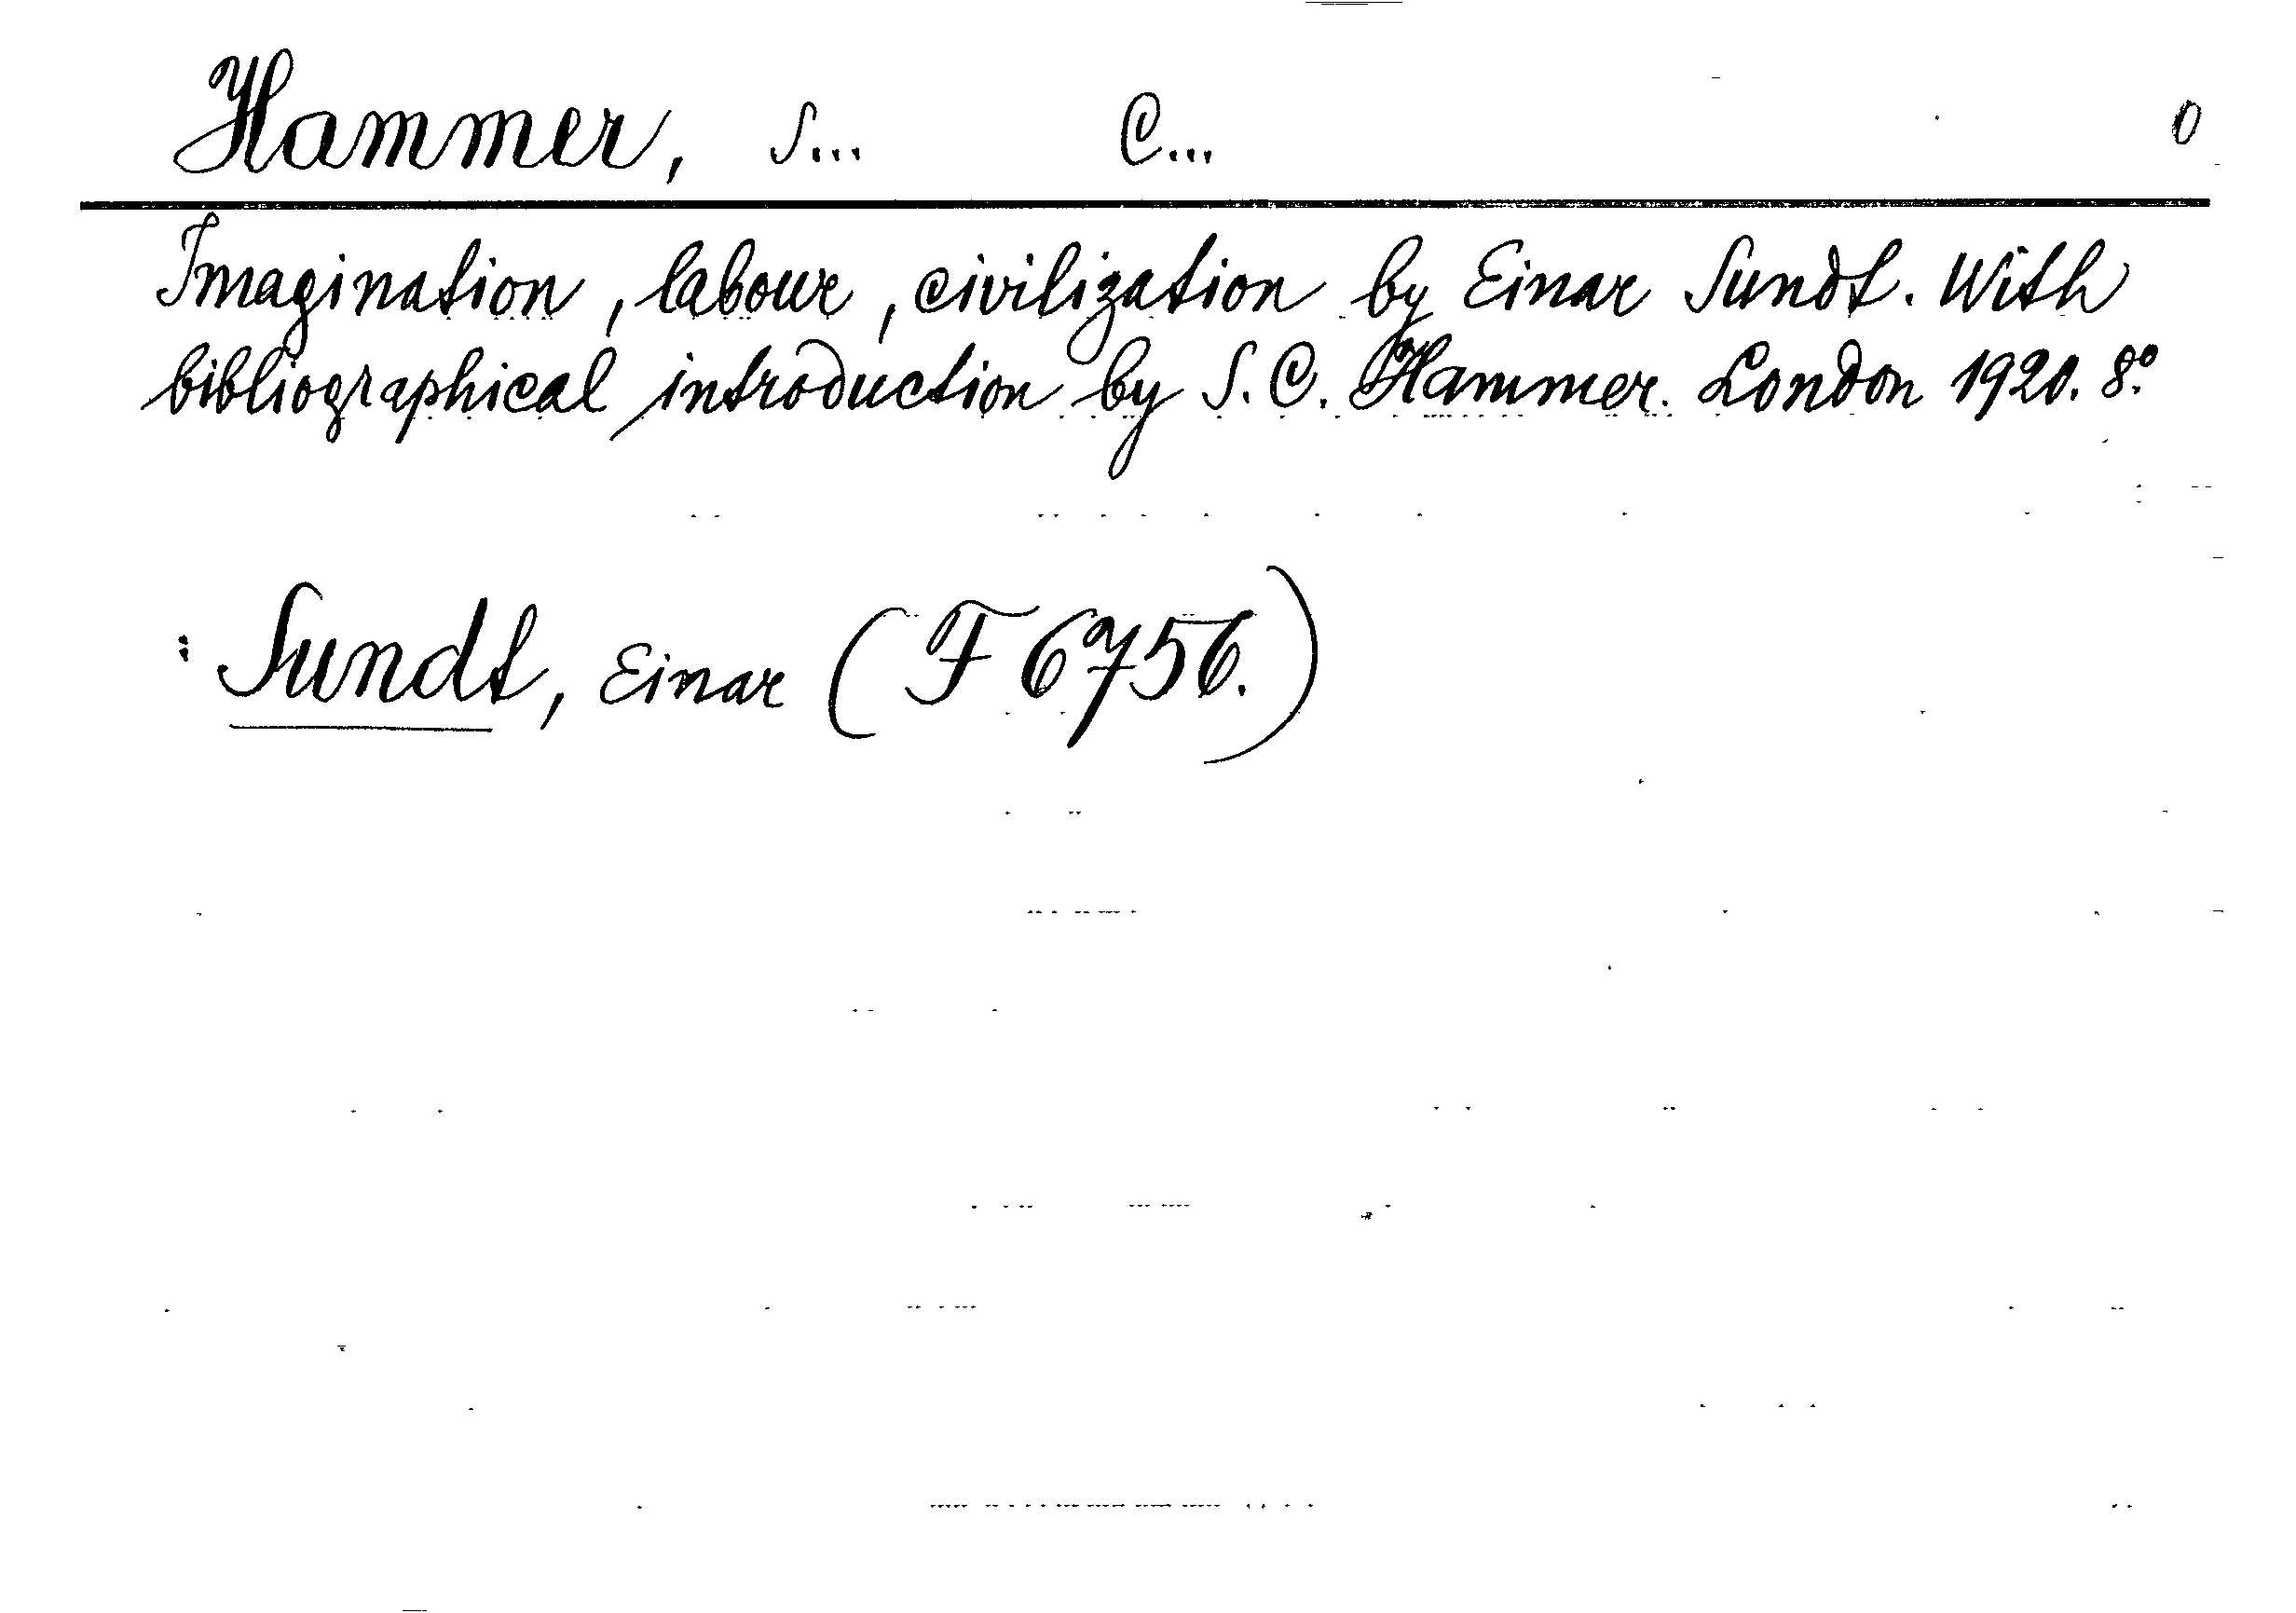 Hammer, S... C... 0
Imagination, labour, civilization by Einar Sundt. With
bibliographical introduction by S. C. Hammer. London 1920. 8.º
: Sundt, Einar (F 6756.)